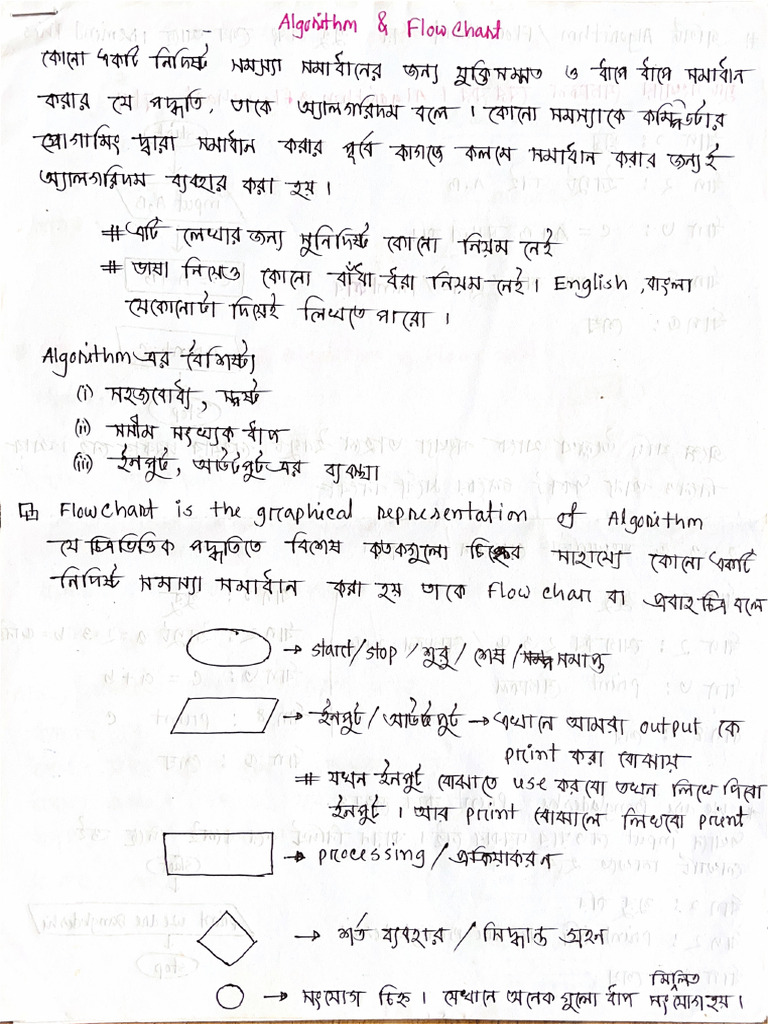 Algorithm & Flow Chart
কোনো একটি নির্দিষ্ট সমস্যা সমাধানের জন্য যুক্তিসম্মত ও ধাপে ধাপে সমাধান
করার যে পদ্ধতি, তাকে অ্যালগরিদম বলে । কোনো সমস্যাকে কম্পিউটার
প্রোগামিং দ্বারা সমাধান করার পূর্বে কাগজে কলমে সমাধান করার জন্যই
অ্যালগরিদম ব্যবহার করা হয় ।
# এটি লেখার জন্য সুনির্দিষ্ট কোনো নিয়ম নেই
# ভাষা নিয়েও কোনো বাঁধা ধরা নিয়ম নেই । English , বাংলা
যেকোনোটা দিয়েই লিখতে পারো ।
Algorithm এর বৈশিষ্ট্য
(i) সহজবোধ্য , স্পষ্ট
(ii) সসীম সংখ্যক ধাপ
(iii) ইনপুট, আউটপুট এর ব্যবস্থা
Flow chart is the graphical representation of Algorithm
যে চিত্রভিত্তিক পদ্ধতিতে বিশেষ কতকগুলো চিহ্নের সাহায্যে কোনো একটি
নির্দিষ্ট সমস্যা সমাধান করা হয় তাকে Flow char বা প্রবাহ চিত্র বলে
→ start/stop / শুরু / শেষ / সমাপ্ত
→ ইনপুট / আউটপুট → এখানে আমরা output কে
print করা বোঝায়
# যখন ইনপুট বোঝাতে use করবো তখন লিখে দিবো
ইনপুট । আর print বোঝালে লিখবো print
→ processing / প্রক্রিয়াকরন
→ শর্ত ব্যবহার / সিদ্ধান্ত গ্রহন
মিলিত
→ সংযোগ চিহ্ন । যেখানে অনেক গুলো ধাপ সংযোগ হয় ।